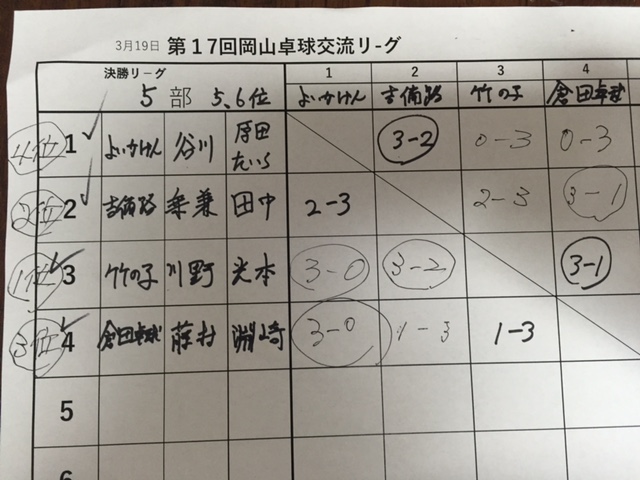 3月19日 第17回岡山卓球交流リーグ
決勝リーグ 1 2 3 4
5 部 5、6位 よいかけん 吉備路 竹の子 倉田卓球
4位 1 よいかけん 谷川 原田 3-2 0-3 0-3
たいら
2位 2 吉備路 乗兼 田中 2-3 2-3 3-1
1位 3 竹の子 川野 光本 3-0 3-2 3-1
3位 4 倉田卓球 藤村 淵崎 3-0 1-3 1-3
5